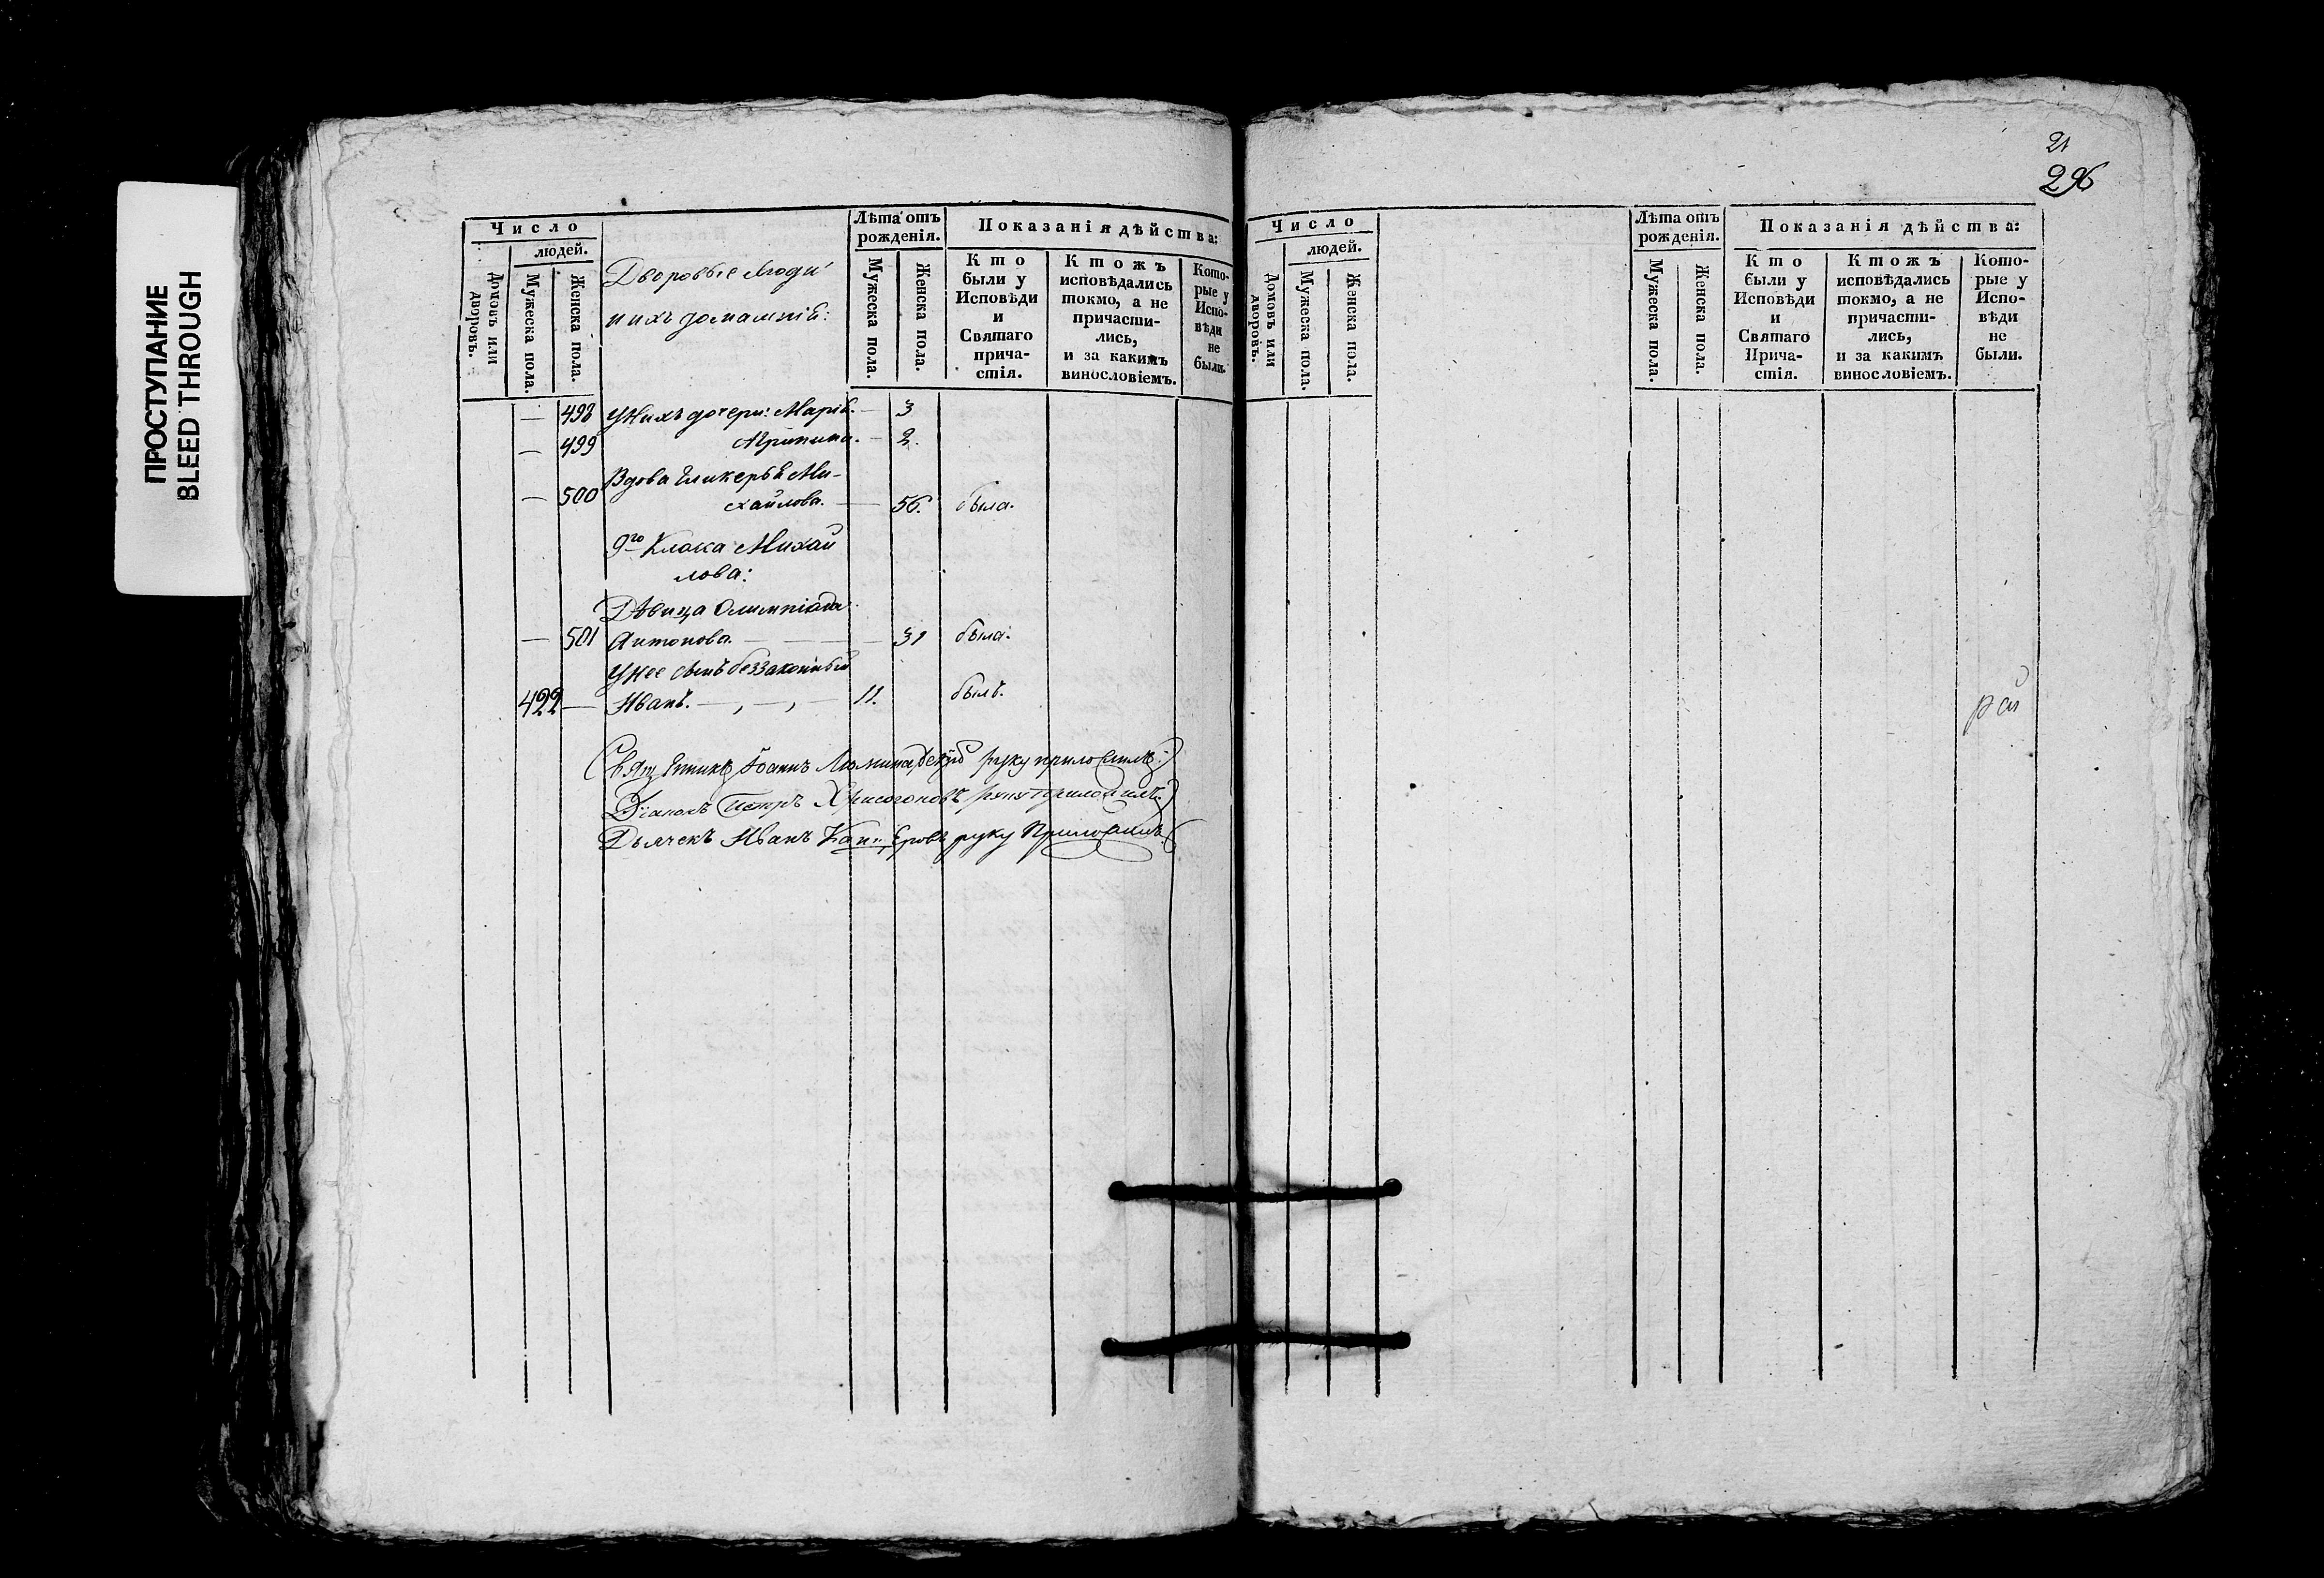 ПРОСТУПАНИЕ
BLEED THROUGH
Число
людей.
Домовъ или дворовъ.
Мужеска пола.
Женска пола.
Дворовые люди
и ихъ домашніе:
Лѣта отъ рожденія.
Мужеска пола.
Женска пола.
Показанія дѣйства:
Кто были у Исповѣди и Святаго причастія.
Ктожъ исповѣдались токмо, а не причастились, и за какимъ винословіемъ.
Которые у Исповѣди не были.
— 498 У нихъ дочери: Марія. — 3
— 499 Агрипина. — 2.
Вдова Гликерья Ми-
— 500 хайлова. — 56. была.
9го Класса Михай
лова:
Дѣвица Олимпіада
— 501 Антонова. — — — — 31 была.
У нее сынъ беззаконный
422 — Иванъ. —, —, — 11. былъ.
Іоаннъ руку приложилъ:
Діаконъ Петръ Хрисогоновъ руку приложилъ.
Дьячекъ Иванъ руку Приложилъ.
21
296
Число
людей.
Домовъ или дворовъ.
Мужеска пола.
Женска пола.
Лѣта отъ рожденія.
Мужеска пола.
Женска пола.
Показанія дѣйства:
Кто были у Исповѣди и Святаго Причастія.
Ктожъ исповѣдались токмо, а не причастились, и за какимъ винословіемъ.
Которые у Исповѣди не были.